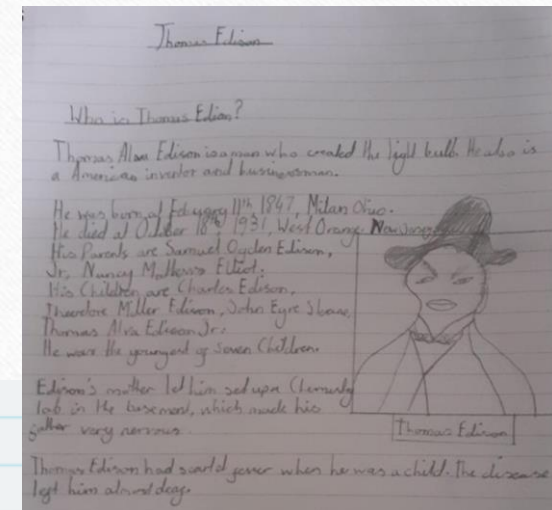 Thomas Edison
Who is Thomas Edison?
Thomas Alva Edison is a man who created the light bulb. He also is
a American inventor and businessman.
He was born at February 11th 1847, Milan Ohio.
He died at October 18th 1931, West Orange New Jersey
His Parents are Samuel Ogden Edison,
Jr, Nancy Matthews Elliot.
His Children are Charles Edison,
Theodore Miller Edison, John Eyre Sloane,
Thomas Alva Edison Jr.
He was the youngest of seven Children.
Edison's mother let him set up a Chemistry
lab in the basement, which made his
father very nervous.
Thomas Edison
Thomas Edison had scarlet fever when he was a child. The disease
left him almost deaf.